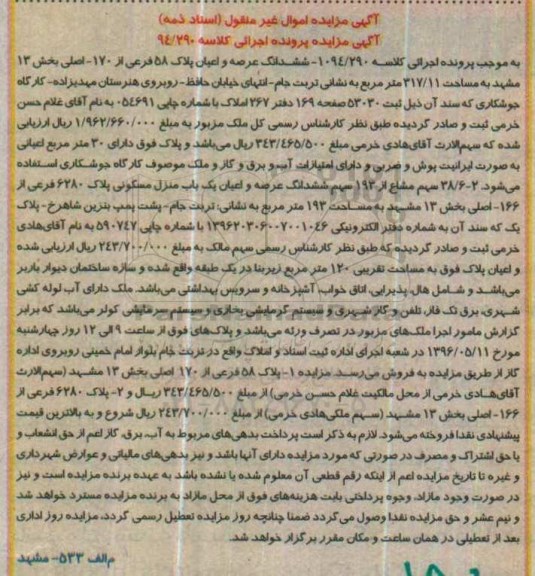 آگهی مزایده اموال غیر منقول (اسناد ذمه)
آگهی مزایده پرونده اجرائی کلاسه ۹٤/۲۹۰
به موجب پرونده اجرائی کلاسه ۱۰۹٤/۲۹۰- ششدانگ عرصه و اعیان پلاک ۵۸ فرعی از ۱۷۰- اصلی بخش ۱۳
مشهد به مساحت ۳۱۷/۱۱ متر مربع به نشانی تربت جام- انتهای خیابان حافظ- روبروی هنرستان مهدیزاده- کارگاه
جوشکاری که سند آن ذیل ثبت ۵۳۰۳۰ صفحه ۱۶۹ دفتر ۲۶۷ املاک با شماره چاپی ۰۵٤۶۹۱ به نام آقای غلام حسن
خرمی ثبت و صادر گردیده طبق نظر کارشناس رسمی کل ملک مزبور به مبلغ ۱/۹۶۲/۶۶۰/۰۰۰ ریال ارزیابی
شده که سهم‌الارث آقای‌هادی خرمی مبلغ ۳٤۳/٤۶۵/۵۰۰ ریال می‌باشد و پلاک فوق دارای ۳۰ متر مربع اعیانی
به صورت ایرانیت پوش و ضربی و دارای امتیازات آب و برق و گاز و ملک موصوف کارگاه جوشکاری استفاده
می‌شود. ۲-۳۸/۶ سهم مشاع از ۱۹۳ سهم ششدانگ عرصه و اعیان یک باب منزل مسکونی پلاک ۶۲۸۰ فرعی از
۱۶۶- اصلی بخش ۱۳ مشهد به مساحت ۱۹۳ متر مربع به نشانی: تربت جام- پشت پمپ بنزین شاهرخ- پلاک
یک که سند آن به شماره دفتر الکترونیکی ۱۳۹۶۲۰۳۰۶۰۰۷۰۰۱۰٤۶ با شماره چاپی ۵۹۰۷٤۷ به نام آقای‌هادی
خرمی ثبت و صادر گردیده که طبق نظر کارشناس رسمی سهم مالک به مبلغ ۲٤۳/۷۰۰/۰۰۰ ریال ارزیابی شده
و اعیان پلاک فوق به مساحت تقریبی ۱۲۰ متر مربع زیربنا در یک طبقه واقع شده و سازه ساختمان دیوار باربر
می‌باشد و شامل هال، پذیرایی، اتاق خواب، آشپزخانه و سرویس بهداشتی می‌باشد. ملک دارای آب لوله کشی
شهری، برق تک فاز، تلفن و گاز شهری و سیستم گرمایشی بخاری و سیستم سرمایشی کولر می‌باشد که برابر
گزارش مامور اجرا ملک‌های مزبور در تصرف ورثه می‌باشد و پلاک‌های فوق از ساعت ۹ الی ۱۲ روز چهارشنبه
مورخ ۱۳۹۶/۰۵/۱۱ در شعبه اجرای اداره ثبت اسناد و املاک واقع در تربت جام بلوار امام خمینی روبروی اداره
گاز از طریق مزایده به فروش می‌رسد. مزایده ۱- پلاک ۵۸ فرعی از ۱۷۰ اصلی بخش ۱۳ مشهد (سهم‌الارث
آقای‌هادی خرمی از محل مالکیت غلام حسن خرمی) از مبلغ ۳٤۳/٤۶۵/۵۰۰ ریال و ۲- پلاک ۶۲۸۰ فرعی از
۱۶۶- اصلی بخش ۱۳ مشهد (سهم ملکی‌هادی خرمی) از مبلغ ۲٤۳/۷۰۰/۰۰۰ ریال شروع و به بالاترین قیمت
پیشنهادی نقدا فروخته می‌شود. لازم به ذکر است پرداخت بدهی‌های مربوط به آب، برق، گاز اعم از حق انشعاب و
یا حق اشتراک و مصرف در صورتی که مورد مزایده دارای آنها باشد و نیز بدهی‌های مالیاتی و عوارض شهرداری
و غیره تا تاریخ مزایده اعم از اینکه رقم قطعی آن معلوم شده یا نشده باشد به عهده برنده مزایده است و نیز
در صورت وجود مازاد، وجوه پرداختی بابت هزینه‌های فوق از محل مازاد به برنده مزایده مسترد خواهد شد
و نیم عشر و حق مزایده نقدا وصول می‌گردد ضمنا چنانچه روز مزایده تعطیل رسمی گردد، مزایده روز اداری
بعد از تعطیلی در همان ساعت و مکان مقرر برگزار خواهد شد.
م‌الف ۵۳۳- مشهد